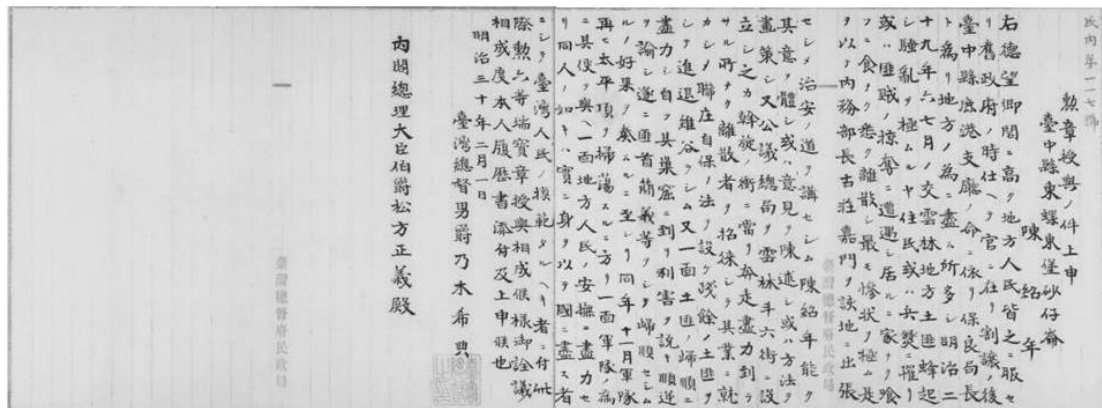 民内第一一七號
勲章授與ノ件上申
臺中縣東螺東堡砂仔崙
陳紹年
右德望郷閭ニ高ク地方人民皆之ニ服セ
リ舊政府ノ時仕ヘテ官ニ在リ割讓ノ後
臺中縣鹿港支廳ノ命ニ依リ保良局長
ト為リ地方ノ為ニ盡ス所多シ明治二
十九年六七月ノ交雲林地方土匪蜂起
シ騷亂ヲ極ムルヤ住民或ハ兵燹ニ罹リ
或ハ匪賊ノ掠奪ニ遭遇シ居ルニ家ナク飧
フニ食ナク悉ク離散シ最モ惨状ヲ極ム是
ヲ以テ内務部長古莊嘉門ヲ該地ニ出張
セシメ治安ノ道ヲ講セシム陳紹年能ク
其意ヲ體シ或ハ意見ヲ陳述シ或ハ方法ヲ
畫策シ又公議總局ヲ雲林斗六街ニ設
立シ之カ斡旋ノ衝ニ當リ奔走盡力到ラ
サル所ナク離散者ヲ招徠シテ其業ニ就
カシメ聯庄自保ノ法ヲ設ケ殘餘ノ土匪ヲ
シテ進退維谷ラシム又一面土匪ノ歸順ニ
盡力シ自ラ其巢窟ニ到リ利害ヲ説キ順逆
ヲ諭シ遂ニ匪首簡義等ヲシテ歸順セシム
ルノ好果ヲ奏スルニ至レリ同年十一月軍隊
再ヒ太平頂ヲ掃蕩スルニ方リ一面軍隊ノ為
ニ具使ヲ與ヘ一面地方人民ノ安撫ニ盡力セ
リ同人ノ如キハ實ニ身ヲ以テ國ニ盡ス者
ニシテ臺灣人民ノ模範タルヘキ者ニ付此
際勲六等瑞寶章授與相成候様御詮議
相成度本人履歴書添付及上申候也
明治三十年二月一日
臺灣總督男爵乃木希典
内閣總理大臣伯爵松方正義殿
臺灣總督府民政局
臺灣總督府民政局